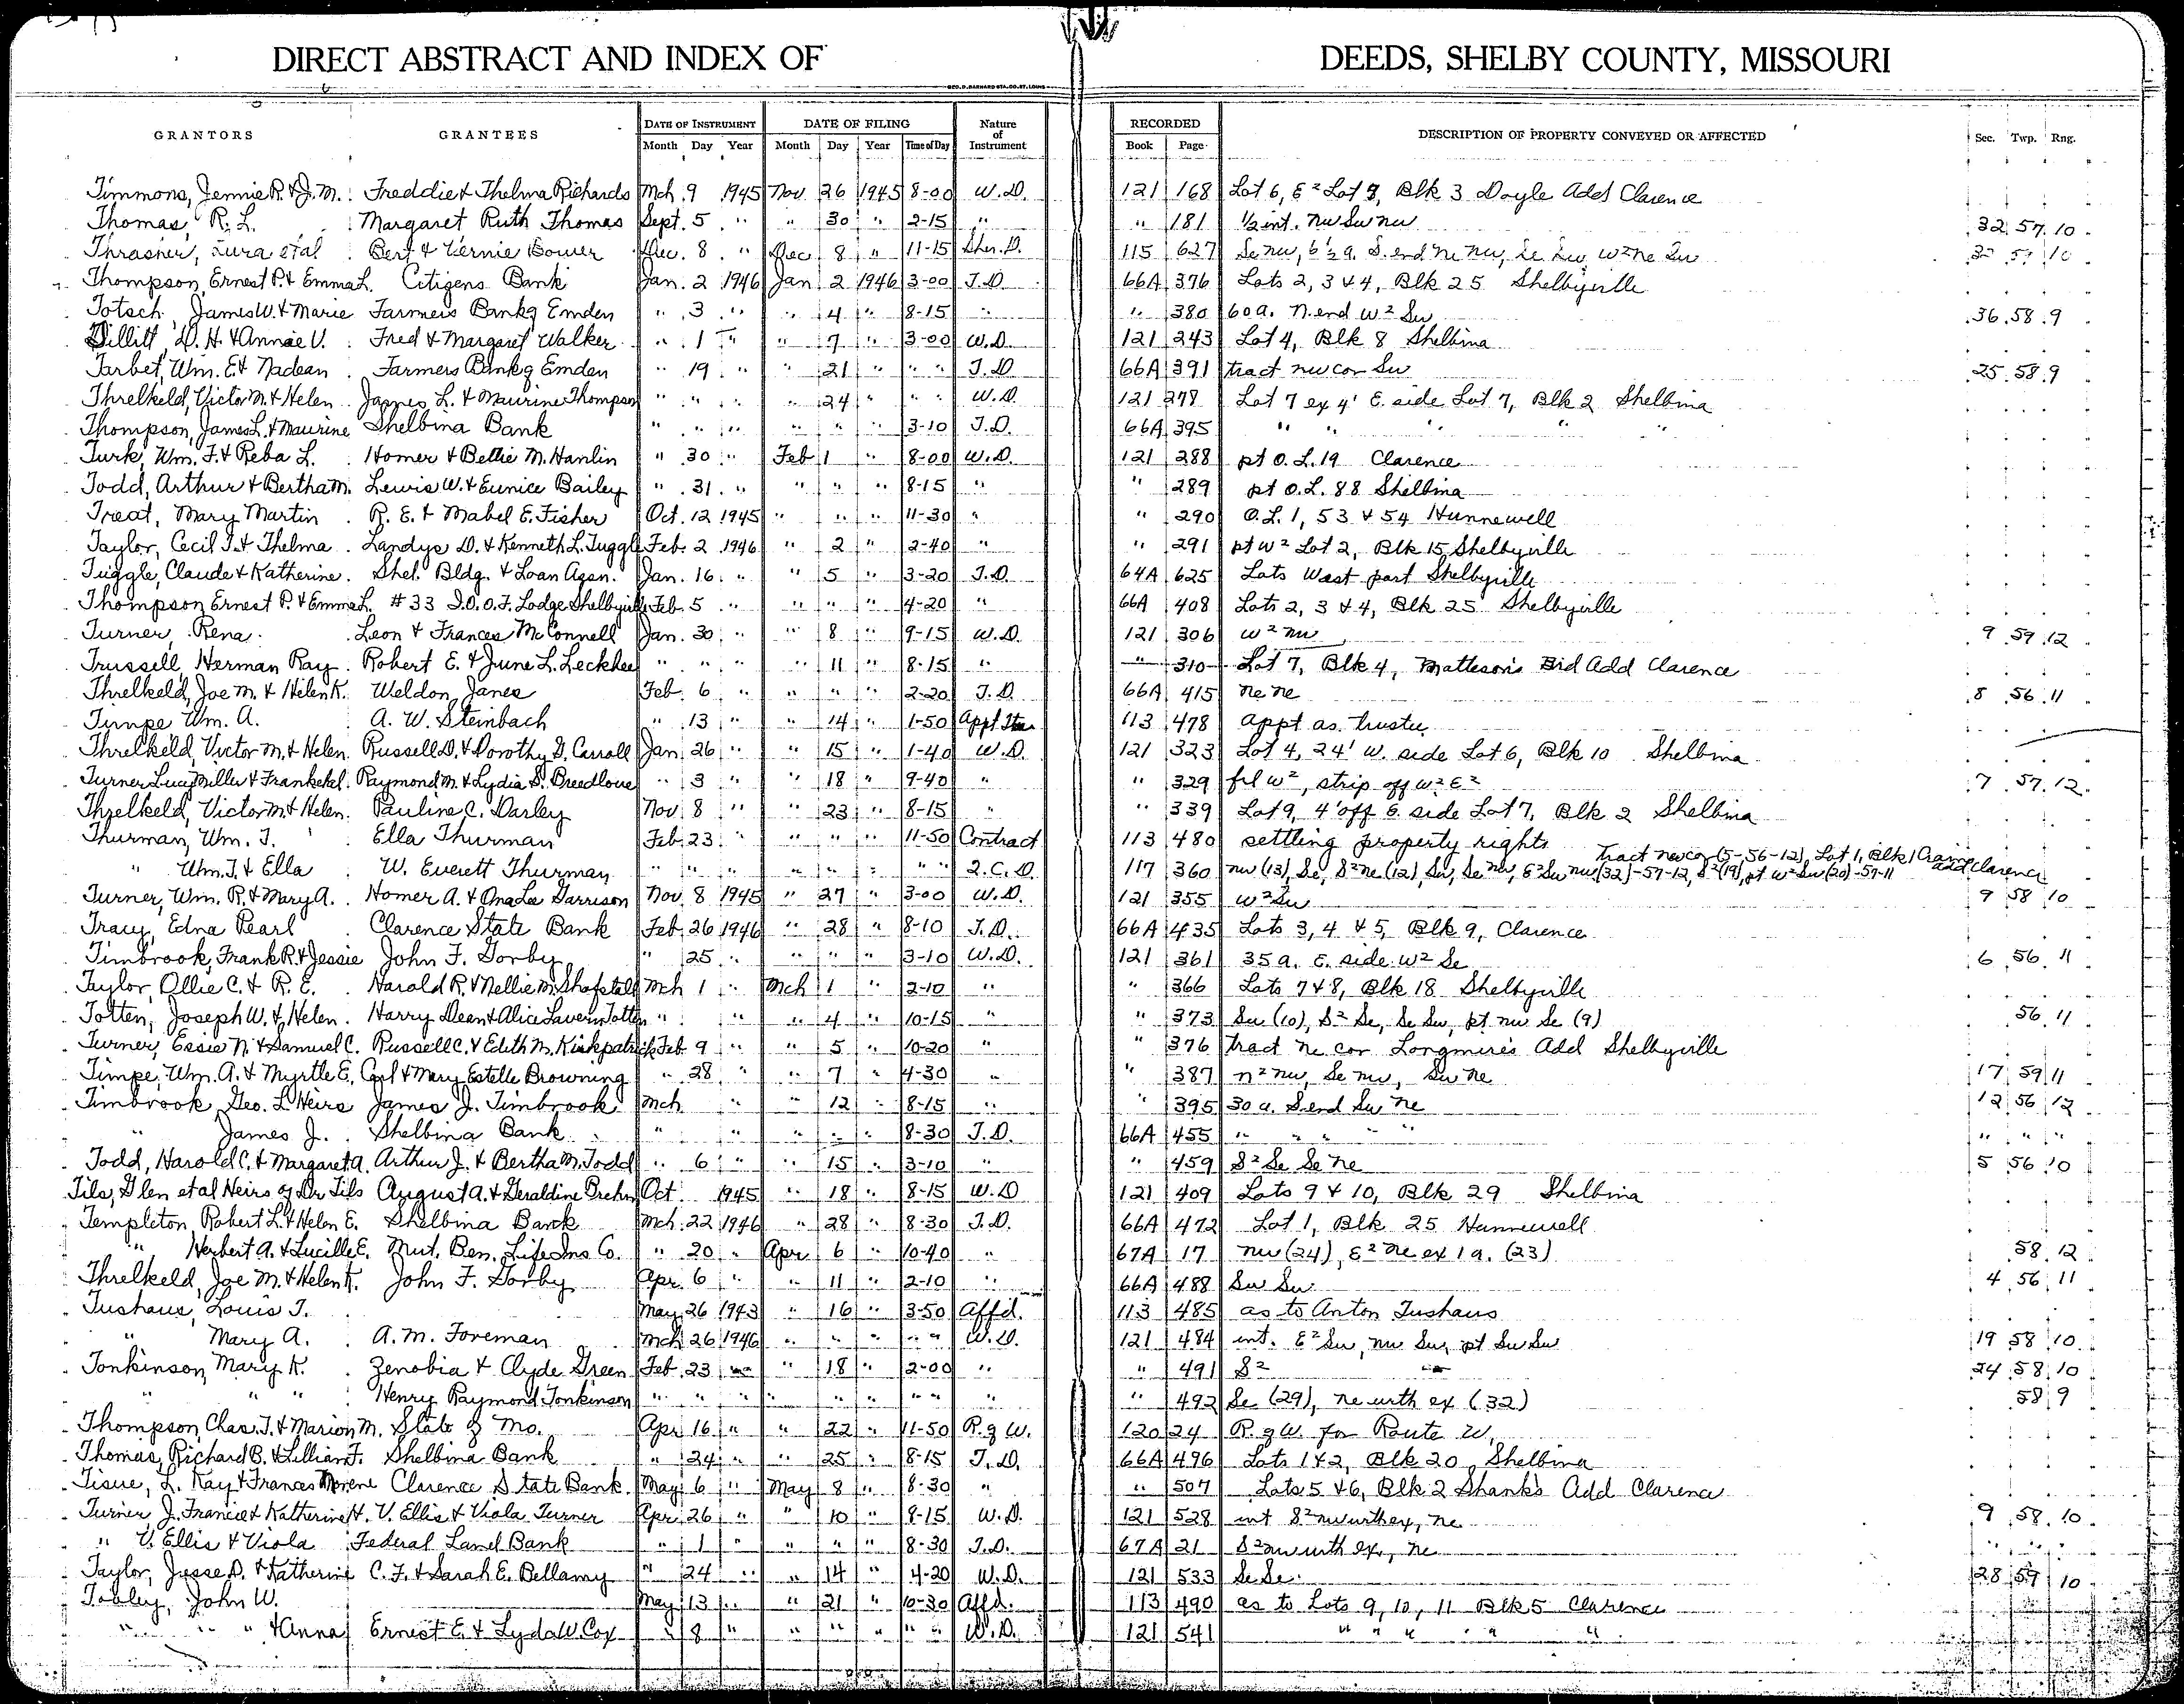 DIRECT ABSTRACT AND INDEX OF DEEDS, SHELBY COUNTY, MISSOURI
GEO. D. BARNARD STA. CO. ST. LOUIS
GRANTORS GRANTEES DATE OF INSTRUMENT DATE OF FILING Nature of Instrument RECORDED DESCRIPTION OF PROPERTY CONVEYED OR AFFECTED Sec. Twp. Rng.
Month Day Year Month Day Year Time of Day Book Page
Timmons, Jennie R. & J. M. Freddie & Thelma Richards Mch 9 1945 Nov 26 1945 8-00 W.D. 121 168 Lot 6, E² Lot 5, Blk 3 Doyle Add Clarence
Thomas, R. L. Margaret Ruth Thomas Sept. 5 " " 30 " 2-15 " " 181 ½ int. nw sw nw 32 57 10
Thrasher, Zura etal Bert & Vernie Bower Dec. 8 " Dec 8 " 11-15 Sher. D. 115 627 Se nw, 6½ a. S. end ne nw, se sw, w² ne sw 59 10
Thompson, Ernest P. & Emma L. Citizens Bank Jan. 2 1946 Jan 2 1946 3-00 T.D. 66A 376 Lots 2, 3 & 4, Blk 25 Shelbyville
Totsch, James W. & Marie Farmers Bank of Emden " 3 " " 4 " 8-15 " " 380 60 a. N. end w² sw 36 58 9
Dillitt, D. H. & Annie V. Fred & Margaret Walker " 1 " " 7 " 3-00 W.D. 121 243 Lot 4, Blk 8 Shelbina
Tarbet, Wm. E. & Nadean Farmers Bank of Emden " 19 " " 21 " " " T.D. 66A 391 tract nw cor sw 25 58 9
Threlkeld, Victor M. & Helen James L. & Maurine Thompson " " " " 24 " " " W.D. 121 278 Lot 7 ex 4' E. side Lot 7, Blk 2 Shelbina
Thompson, James L. & Maurine Shelbina Bank " " " " " " 3-10 T.D. 66A 395 " " " " "
Turk, Wm. F. & Reba L. Homer & Bettie M. Hanlin " 30 " Feb 1 " 8-00 W.D. 121 288 pt O. L. 19 Clarence
Todd, Arthur & Bertha M. Lewis W. & Eunice Bailey " 31 " " " " 8-15 " " 289 pt O.L. 88 Shelbina
Treat, Mary Martin R. E. & Mabel E. Fisher Oct. 12 1945 " " " 11-30 " " 290 O.L. 1, 53 & 54 Hunnewell
Taylor, Cecil T. & Thelma Landys D. & Kenneth L. Tuggle Feb. 2 1946 " 2 " 2-40 " " 291 pt w² Lot 2, Blk 15 Shelbyville
Tuggle, Claude & Katherine Shel. Bldg. & Loan Assn. Jan. 16 " " 5 " 3-20 T.D. 64A 625 Lots West part Shelbyville
Thompson Ernest P. & Emma L. #33 I.O.O.F. Lodge Shelbyville Feb. 5 " " " " 4-20 " 66A 408 Lots 2, 3 & 4, Blk 25 Shelbyville
Turner, Rena Leon & Frances McConnell Jan. 30 " " 8 " 9-15 W.D. 121 306 w² nw 9 59 12
Trussell, Herman Ray Robert E. & June L. Leckbee " " " " 11 " 8-15 " " 310 Lot 7, Blk 4, Matteson's Bid Add Clarence
Threlkeld, Joe M. & Helen K. Weldon Janes Feb. 6 " " " " 2-20 T.D. 66A 415 ne ne 8 56 11
Timpe Wm. A. A. W. Steinbach " 13 " " 14 " 1-50 Appt. 113 478 appt as trustee
Threlkeld, Victor M. & Helen Russell D. & Dorothy G. Carroll Jan. 26 " " 15 " 1-40 W.D. 121 323 Lot 4, 24' W. side Lot 6, Blk 10 Shelbina
Turner, Lucy Miller & Frank Raymond M. & Lydia S. Breedlove " 3 " " 18 " 9-40 " " 329 frl w², strip off w² E² 7 57 12
Threlkeld, Victor M. & Helen Pauline C. Darley Nov 8 " " 23 " 8-15 " " 339 Lot 9, 4' off E. side Lot 7, Blk 2 Shelbina
Thurman, Wm. T. Ella Thurman Feb. 23 " " " " 11-50 Contract 113 480 settling property rights
" Wm. T. & Ella W. Everett Thurman " " " " " " " " Q.C.D. 117 360 nw (13), Se, S² ne (12), Sw, Se nw, E² Sw nw (32)-57-12, S² (19), pt w² Sw (20)-57-11 Tract nw cor (5-56-12), Lot 1, Blk 1 add Clarence
Turner, Wm. R. & Mary A. Homer A. & Ona Lee Garrison Nov 8 1945 " 27 " 3-00 W.D. 121 355 w² Sw 9 58 10
Tracy, Edna Pearl Clarence State Bank Feb. 26 1946 " 28 " 8-10 T.D. 66A 435 Lots 3, 4 & 5, Blk 9, Clarence
Timbrook, Frank R. & Jessie John F. Gorby " 25 " " " " 3-10 W.D. 121 361 35 a. E. side w² Se 6 56 11
Taylor, Ollie C. & R. E. Harold R. & Nellie M. Shofstall Mch 1 " Mch 1 " 2-10 " " 366 Lots 7 & 8, Blk 18 Shelbyville
Totten, Joseph W. & Helen Harry Dean & Alice Lavern Totten " " " 4 " 10-15 " " 373 Sw (10), S² Se, Se Sw, pt nw Se (9) 56 11
Turner, Essie N. & Samuel C. Russell C. & Edith M. Kirkpatrick Feb. 9 " " 5 " 10-20 " " 376 tract ne cor Longmire's Add Shelbyville
Timpe, Wm. A. & Myrtle E. Carl & Mary Estelle Browning " 28 " " 7 " 4-30 " " 387 n² nw, Se nw, Sw ne 17 59 11
Timbrook, Geo. L. Heirs James J. Timbrook Mch " " 12 " 8-15 " " 395 30 a. S. end Sw ne 12 56 12
" James J. Shelbina Bank " " " " " 8-30 T.D. 66A 455 " " " " " " "
Todd, Harold C. & Margaret A. Arthur J. & Bertha M. Todd " 6 " " 15 " 3-10 " " 459 S² Se Se ne 5 56 10
Tils, Glen etal Heirs of Dr Tils August A. & Geraldine Brehm Oct. 1945 " 18 " 8-15 W.D 121 409 Lots 9 & 10, Blk 29 Shelbina
Templeton, Robert L. & Helen E. Shelbina Bank Mch. 22 1946 " 28 " 8-30 T.D. 66A 472 Lot 1, Blk 25 Hunnewell
" Herbert A. & Lucille E. Mut. Ben. Life Ins Co. " 20 " Apr 6 " 10-40 " 67A 17 nw (24), E² ne ex 1 a. (23) 58 12
Threlkeld, Joe M. & Helen K. John F. Gorby Apr. 6 " " 11 " 2-10 " 66A 488 Sw Sw 4 56 11
Tushaus, Louis T. May 26 1943 " 16 " 3-50 Affd. 113 485 as to Anton Tushaus
" Mary A. A. M. Foreman Mch 26 1946 " " " " " W.D. 121 484 int. E² Sw, nw Sw, pt Sw Sw 19 58 10
Tonkinson, Mary K. Zenobia & Clyde Green Feb. 23 " " 18 " 2-00 " " 491 S² 24 58 10
" " " Henry Raymond Tonkinson " " " " " " " " " " 492 Se (29), ne wrth ex (32) 58 9
Thompson, Chas. T. & Marion M. State of Mo. Apr 16 " " 22 " 11-50 R. of W. 120 24 R. of W. for Route W.
Thomas, Richard B. & Lillian F. Shelbina Bank " 24 " " 25 " 8-15 T.D. 66A 496 Lots 1 & 2, Blk 20, Shelbina
Tisue, L. Ray & Frances Morene Clarence State Bank May 6 " May 8 " 8-30 " " 507 Lots 5 & 6, Blk 2 Shanks Add Clarence
Turner J. Francis & Katherine H. V. Ellis & Viola Turner Apr. 26 " " 10 " 8-15 W.D. 121 528 int S² nw wrth ex, ne 9 58 10
" V. Ellis & Viola Federal Land Bank " 1 " " " " 8-30 T.D. 67A 21 S² nw wrth ex, ne " " "
Taylor, Jesse D. & Katherine C. F. & Sarah E. Bellamy " 24 " " 14 " 4-20 W.D. 121 533 Se Se 28 59 10
Tobley, John W. May 13 " " 21 " 10-30 Affd. 113 490 as to Lots 9, 10, 11 Blk 5 Clarence
" " " & Anna Ernest E. & Lyda W. Cox " 8 " " " " " " W.D. 121 541 " " " " "